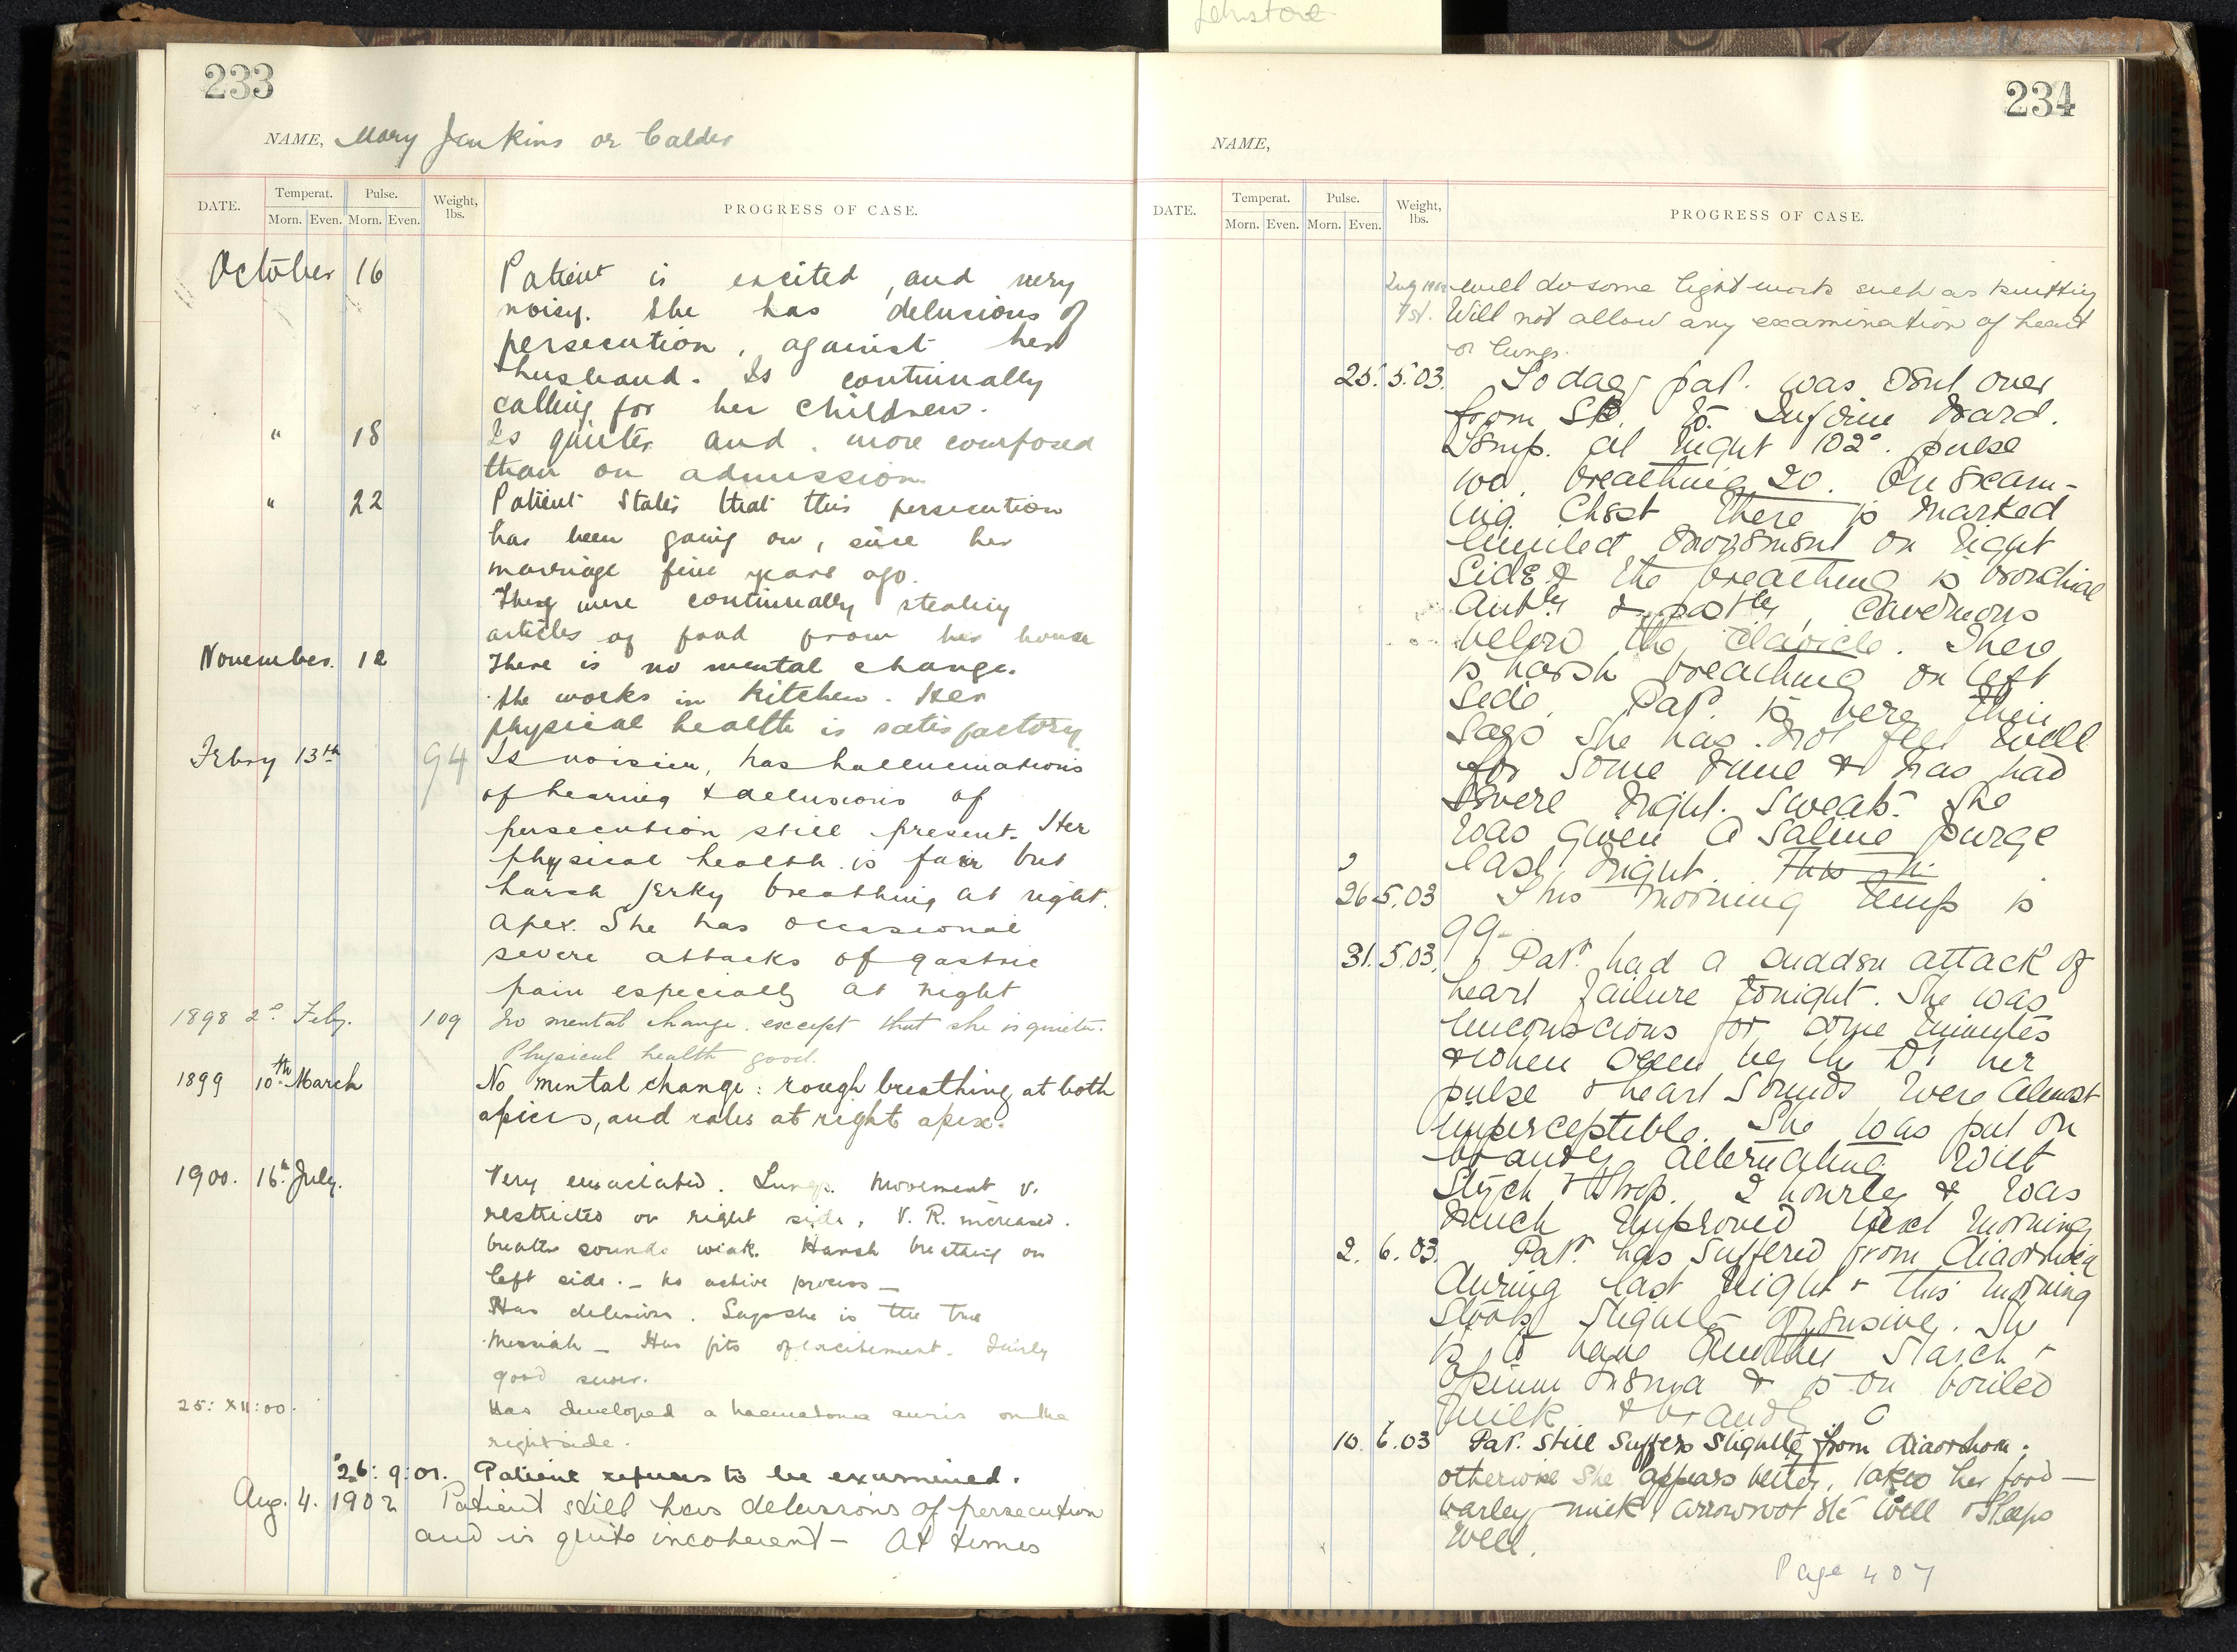 233
NAME, Mary Jenkins or Calder
DATE. Temperat. Pulse. Weight, lbs. PROGRESS OF CASE.
Morn. Even. Morn. Even.
October 16 Patient is excited, and very
noisy. She has delusions of
persecution, against her
husband. Is continually
calling for her children.
" 18 Is quieter and more composed
than on admission.
" 22 Patient States that this persecution
has been going on, since her
marriage five years ago.
They were continually stealing
articles of food from her house
November. 12 There is no mental change.
She works in Kitchen. Her
physical health is satisfactory
Febry 13th 94 Is noisier, has hallucinations
of hearing & delusions of
persecution still present. Her
physical health is fair but
harsh jerky breathing at right
apex. She has occasional
severe attacks of gastric
pain especially at night
1898 2d Feby. 109 No mental change. except that she is quieter.
Physical health good.
1899 10th March No mental change: rough breathing at both
apices, and rales at right apex.
1900. 16th July. Very emaciated. Lungs. Movement v.
restricted on right side, V. R. increased.
breath sounds weak. Harsh breathing on
left side. - No active process -
Has delusions. Says she is the true
Messiah - Has fits of excitement. Fairly
good sewer.
25: XII: 00. Has developed a haematoma auris on the
right side.
26: 9: 01. Patient refuses to be examined.
Aug. 4. 1902 Patient still has delusions of persecution
and is quite incoherent - At times
234
NAME,
DATE. Temperat. Pulse. Weight, lbs. PROGRESS OF CASE.
Morn. Even. Morn. Even.
will do some light work such as knitting
Will not allow any examination of heart
or lungs.
25. 5. 03. Today pat. was sent over
from to Infirm Ward.
Temp. at night 102°. pulse
breathing 20. On exam-
ing Chest there is marked
limited movement on right
side & the breathing is bronchial
antly & postly, cavernous
below the clavicle. There
is harsh breathing on left
side. Pat. is very thin
says she has not felt well
for some time & has had
severe night sweats. She
was given a saline purge
last night.
26 5. 03 This morning temp is
99
31. 5. 03. Pat. had a sudden attack of
heart failure tonight. She was
unconscious for some minutes
& when seen by the Dr her
pulse & heart sounds were almost
imperceptible. She was put on
brandy alternating with
Stych & Strop. 2 hourly & was
much improved next morning
2. 6. 03. Pat. has suffered from diarrhoea
during last night & this morning
Stools slightly offensive. She
is to have another Starch &
Opium enema & is on boiled
milk & brandy.
10. 6. 03 Pat. still suffers slightly from diarrhoea.
otherwise she appears better, takes her food —
barley milk arrowroot etc well & sleeps
well.
Page 407